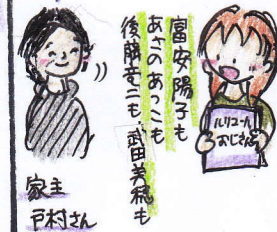 富安陽子も
あさのあつこも
後藤竜二も 武田美穂も
ルリユール
おじさん
家主
戸村さん